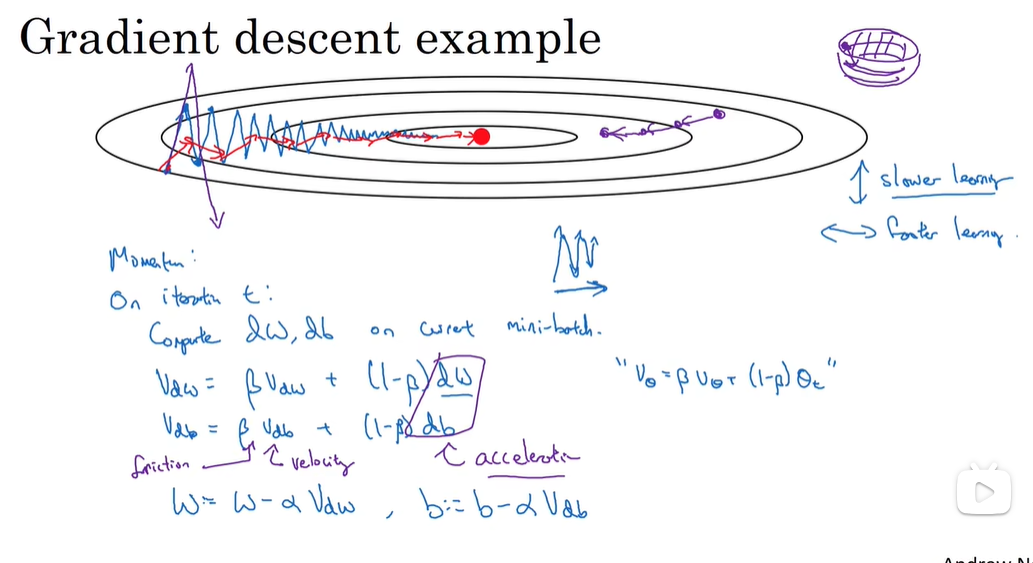 Gradient descent example
↕ slower learning
↔ faster learning.
Momentum:
On iteration t:
Compute dW, db on current mini-batch.
V_dw = β V_dw + (1-β) dW
"V_θ = β V_θ + (1-β) θ_t"
V_db = β V_db + (1-β) db
friction velocity acceleration
W := W - α V_dw , b := b - α V_db
Andrew N